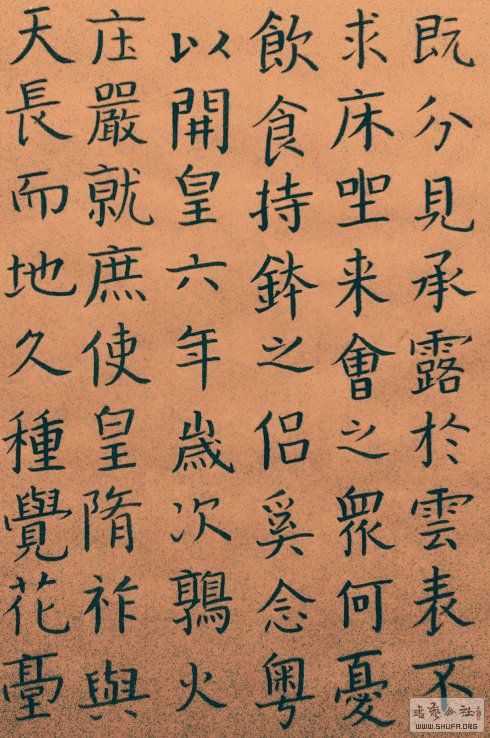 既分見承露於雲表不
求床坐来會之眾何憂
飲食持鉢之侶奚念粤
以開皇六年歲次鶉火
庄嚴就庶使皇隋祚與
天長而地久種覺花臺
WWW.SHUFA.ORG